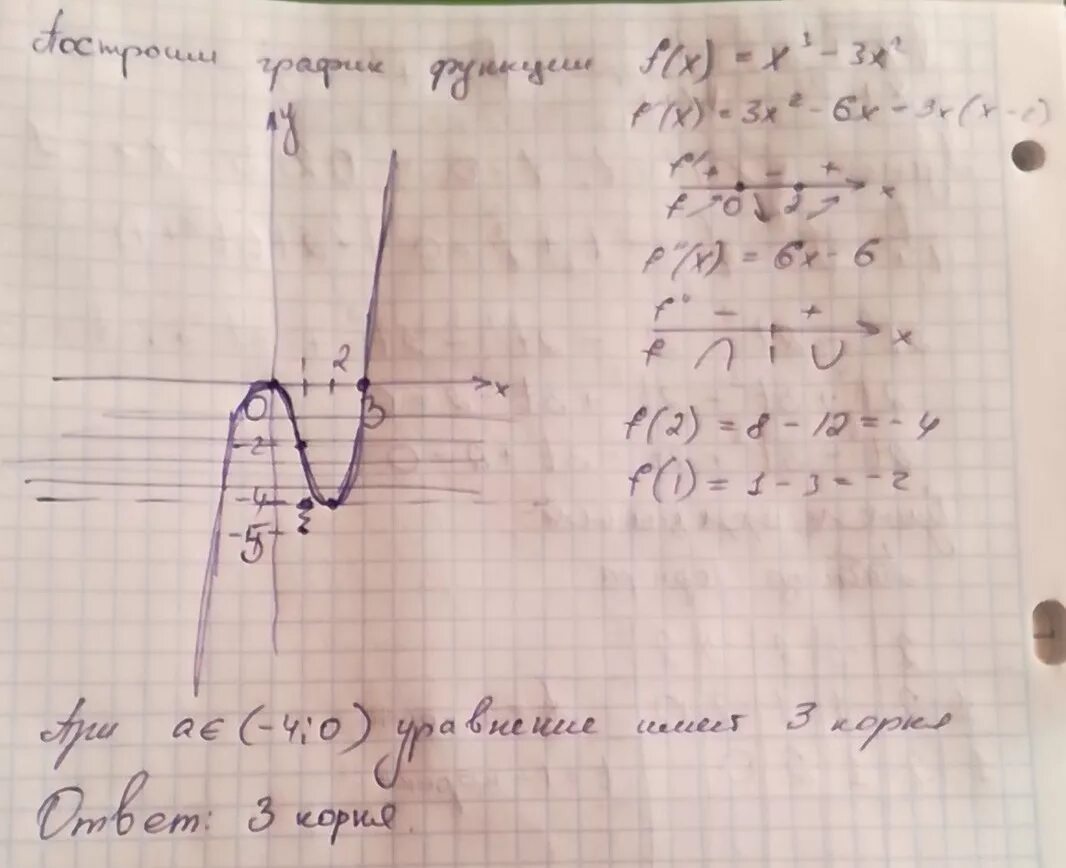 Построим график функции f(x) = x³ - 3x²
f'(x) = 3x² - 6x = 3x(x-2)
y
f' + - + x
f 0 2
f''(x) = 6x - 6
f'' - + x
f 1
1 2 x
0 3
-2
-4
-5
f(2) = 8 - 12 = -4
f(1) = 1 - 3 = -2
При a∈(-4;0) уравнение имеет 3 корня
Ответ: 3 корня.